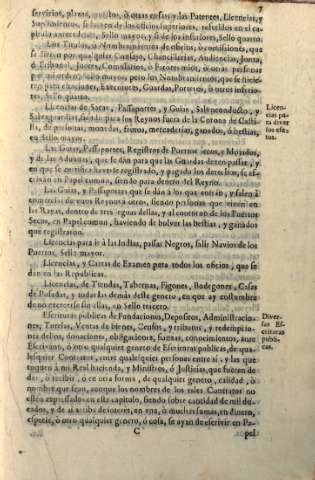 7
servicios, plazas, sueldos, ò otras cosas, y las Patentes, Licencias, y
Suplimientos, si fueren de los oficios superiores, referidos en el ca-
pitulo antecedente, Sello mayor, y si de los inferiores, Sello quarto.
Los Titulos, ò Nombramientos de oficios, ò comisiones, que
se dieren por qualquier Consejo, Chancilerias, Audiencias, Junta,
ò Tribunal, Iuezes, Comisarios, ò Factores mios, ò otras personas
por mi orden, Sello mayor, pero los Nombramientos, que se hicie-
ren para escriuanos, Executores, Guardas, Porteros, ò otros inferio-
res, Sello quarto.
Licencias de Sacas, Passaportes, y Guias, Saluoconductos, y
Saluaguardias, siendo para los Reynos fuera de la Corona de Casti-
lla, de personas, moneda, frutos, mercaderias, ganados, ò bestias,
en Sello mayor.
Licen-
cias pa-
ra diver
sos efec-
tos.
Las Guias, Passaportes, Registros de Puertos secos, y Mojados,
y de las Aduanas, que se dàn para que las Guardas dexen passar, y
en que se certifica hauerse registrado, y pagado los derechos, se es-
criuan en Papel comun, siendo para dentro del Reyno.
Las Guias, y Passaportes que se dàn à los que entran, y salen à
comerciar de vnos Reynos à otros, siendo personas que viuen en
las Rayas, dentro de tres leguas dellas, y al contorno de los Puertos
Secos, en Papel comun, haviendo de bolver las bestias, y ganados
que registraron.
Licencias para ir à las Indias, passar Negros, salir Navios de los
Puertos, Sello mayor.
Licencias, y Cartas de Examen para todos los oficios, que se
dàn en las Republicas.
Licencias, de Tiendas, Tabernas, Figones, Bodegones, Casas
de Posadas, y todas las demàs deste genero, en que ay costumbre
de no exercerse sin ellas, en Sello tercero.
Escrituras publicas de Fundaciones, Depositos, Administracio-
nes, Tutelas, Ventas de bienes, Censos, y tributos, y redempcio-
nes dellos, donaciones, obligaciones, fianças, conocimientos, ante
Escriuano, ò otro qualquier genero de Escrituras publicas, de qua-
lesquier Contratos, entre qualesquier personas entre sì, y las que
tocaren à mi Real hacienda, y Ministros, ò Justicias, que fueren de
dar, ò recibir, ò en otra forma, de qualquier genero, calidad, ò
nombre que sean, aunque los nombres de los tales Contratos no
estèn expressados en este capitulo, siendo sobre cantidad de mil du-
cados, y de ai arriba de interès, en vna, ò muchas sumas, en dinero,
especie, ò otro qualquier genero, ò cosa, se ayan de escrivir en Pa-
Diver-
sas Es-
crituras
publi-
cas.
C
pel